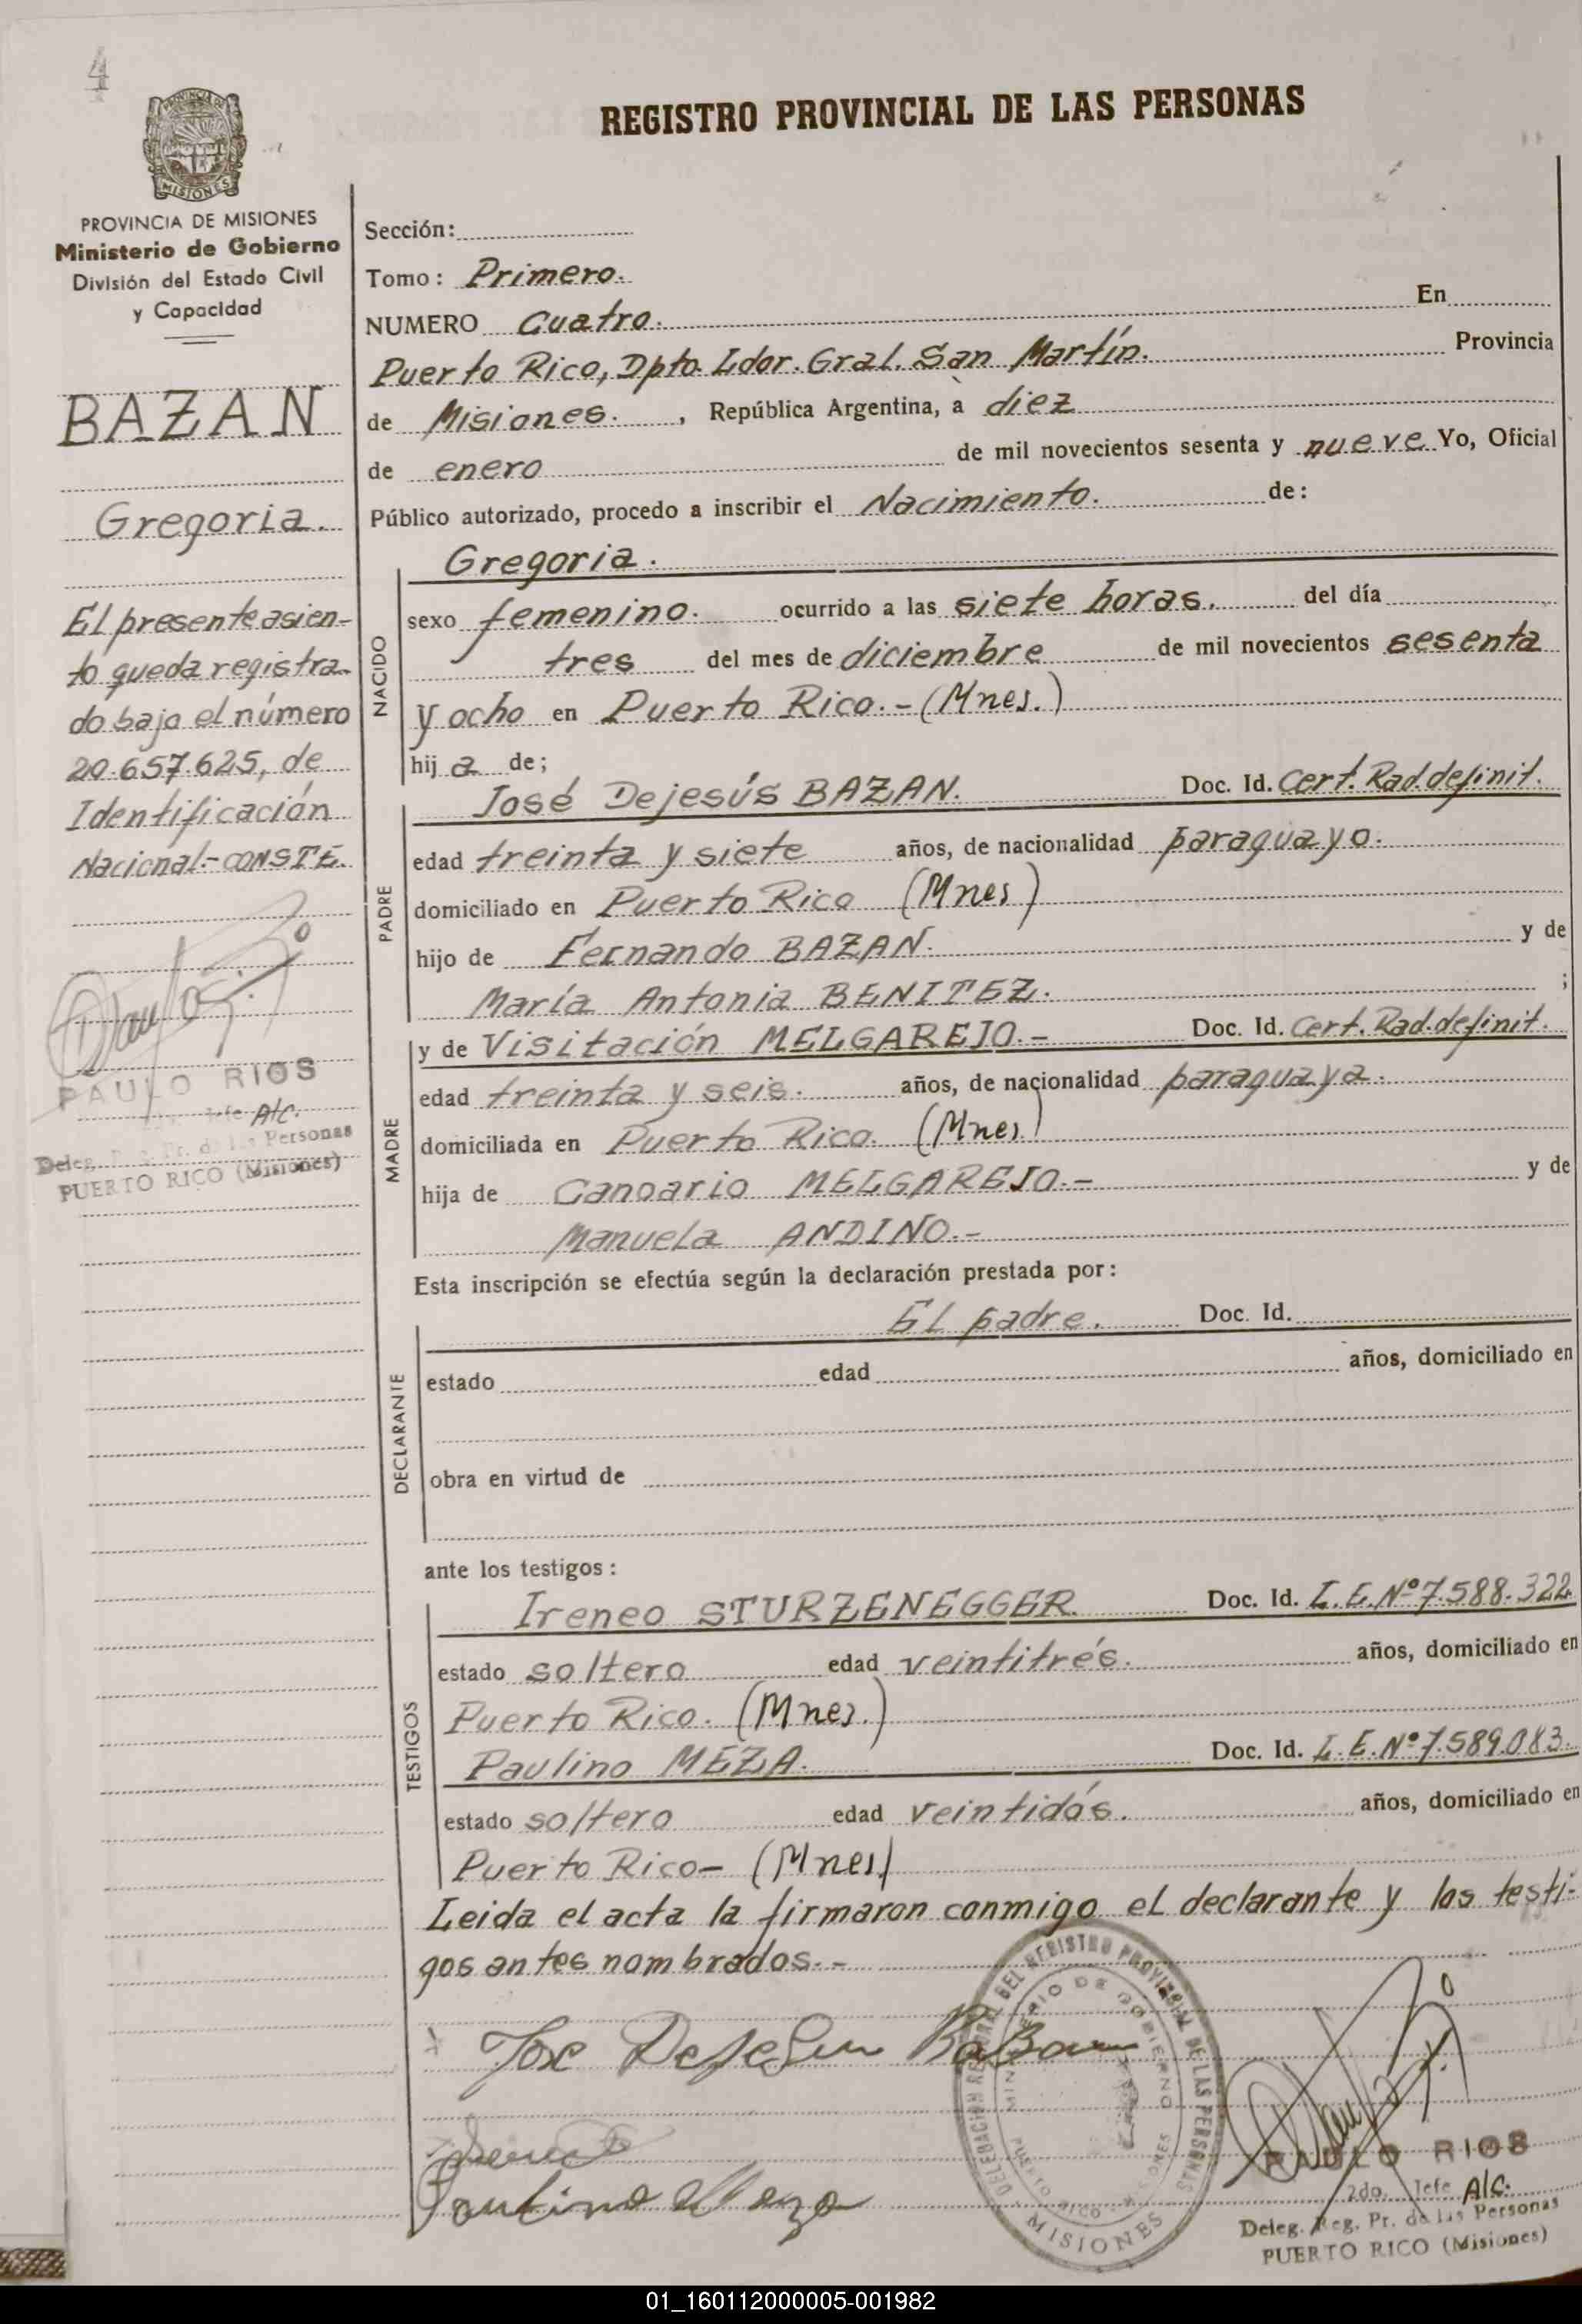 4
PROVINCIA DE
MISIONES
PROVINCIA DE MISIONES
Ministerio de Gobierno
División del Estado Civil
y Capacidad
BAZAN
Gregoria.
El presente asien-
to queda registra-
do bajo el número
20.657.625, de
Identificación
Nacional.-CONSTE.
PAULO RIOS
Jefe A/C.
Deleg. Pr. de las Personas
PUERTO RICO (Misiones)
REGISTRO PROVINCIAL DE LAS PERSONAS
Sección:
Tomo: Primero.
NUMERO Cuatro. En
Puerto Rico, Dpto. Ldor. Gral. San Martín. Provincia
de Misiones. , República Argentina, a diez
de enero de mil novecientos sesenta y nueve Yo, Oficial
Público autorizado, procedo a inscribir el Nacimiento. de:
NACIDO
Gregoria.
sexo femenino. ocurrido a las siete horas. del día
tres del mes de diciembre de mil novecientos sesenta
y ocho en Puerto Rico.-(Mnes.)
hij a de;
PADRE
José Dejesús BAZAN. Doc. Id. Cert. Rad. definit.
edad treinta y siete años, de nacionalidad paraguayo.
domiciliado en Puerto Rico (Mnes)
hijo de Fernando BAZAN. y de
María Antonia BENITEZ. ;
MADRE
y de Visitación MELGAREJO.- Doc. Id. Cert. Rad. definit.
edad treinta y seis. años, de nacionalidad paraguaya.
domiciliada en Puerto Rico. (Mnes)
hija de Canoario MELGAREJO.- y de
Manuela ANDINO.-
Esta inscripción se efectúa según la declaración prestada por:
DECLARANTE
El padre. Doc. Id.
estado edad años, domiciliado en
obra en virtud de
ante los testigos:
TESTIGOS
Ireneo STURZENEGGER. Doc. Id. L.E. Nº 7.588.322
estado soltero edad veintitrés. años, domiciliado en
Puerto Rico. (Mnes.)
Paulino MEZA. Doc. Id. L.E. Nº 7.589.083.
estado soltero edad veintidós. años, domiciliado en
Puerto Rico- (Mnes)
Leida el acta la firmaron conmigo el declarante y los testi-
gos antes nombrados.-
Jose Dejesus Bazan
Paulino Meza
DELEGACION REGIONAL DEL REGISTRO PROVINCIAL DE LAS PERSONAS
MINISTERIO DE GOBIERNO
PUERTO RICO - MISIONES
MISIONES
PAULO RIOS
2do. Jefe A/C.
Deleg. Reg. Pr. de las Personas
PUERTO RICO (Misiones)
01_160112000005-001982